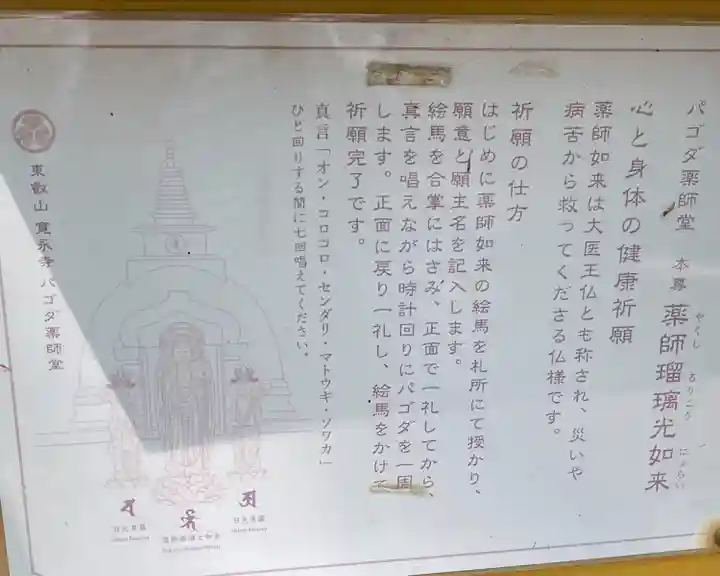 パゴダ薬師堂 本尊 薬師瑠璃光如来
やくし るりこう にょらい
心と身体の健康祈願
薬師如来は大医王仏とも称され、災いや
病苦から救ってくださる仏様です。
祈願の仕方
はじめに薬師如来の絵馬を札所にて授かり、
願意と願主名を記入します。
絵馬を合掌にはさみ、正面で一礼してから、
真言を唱えながら時計回りにパゴダを一周
します。正面に戻り一礼し、絵馬をかけて
祈願完了です。
真言「オン・コロコロ・センダリ・マトウギ・ソワカ」
ひと回りする間に七回唱えてください。
東叡山 寛永寺 パゴダ薬師堂